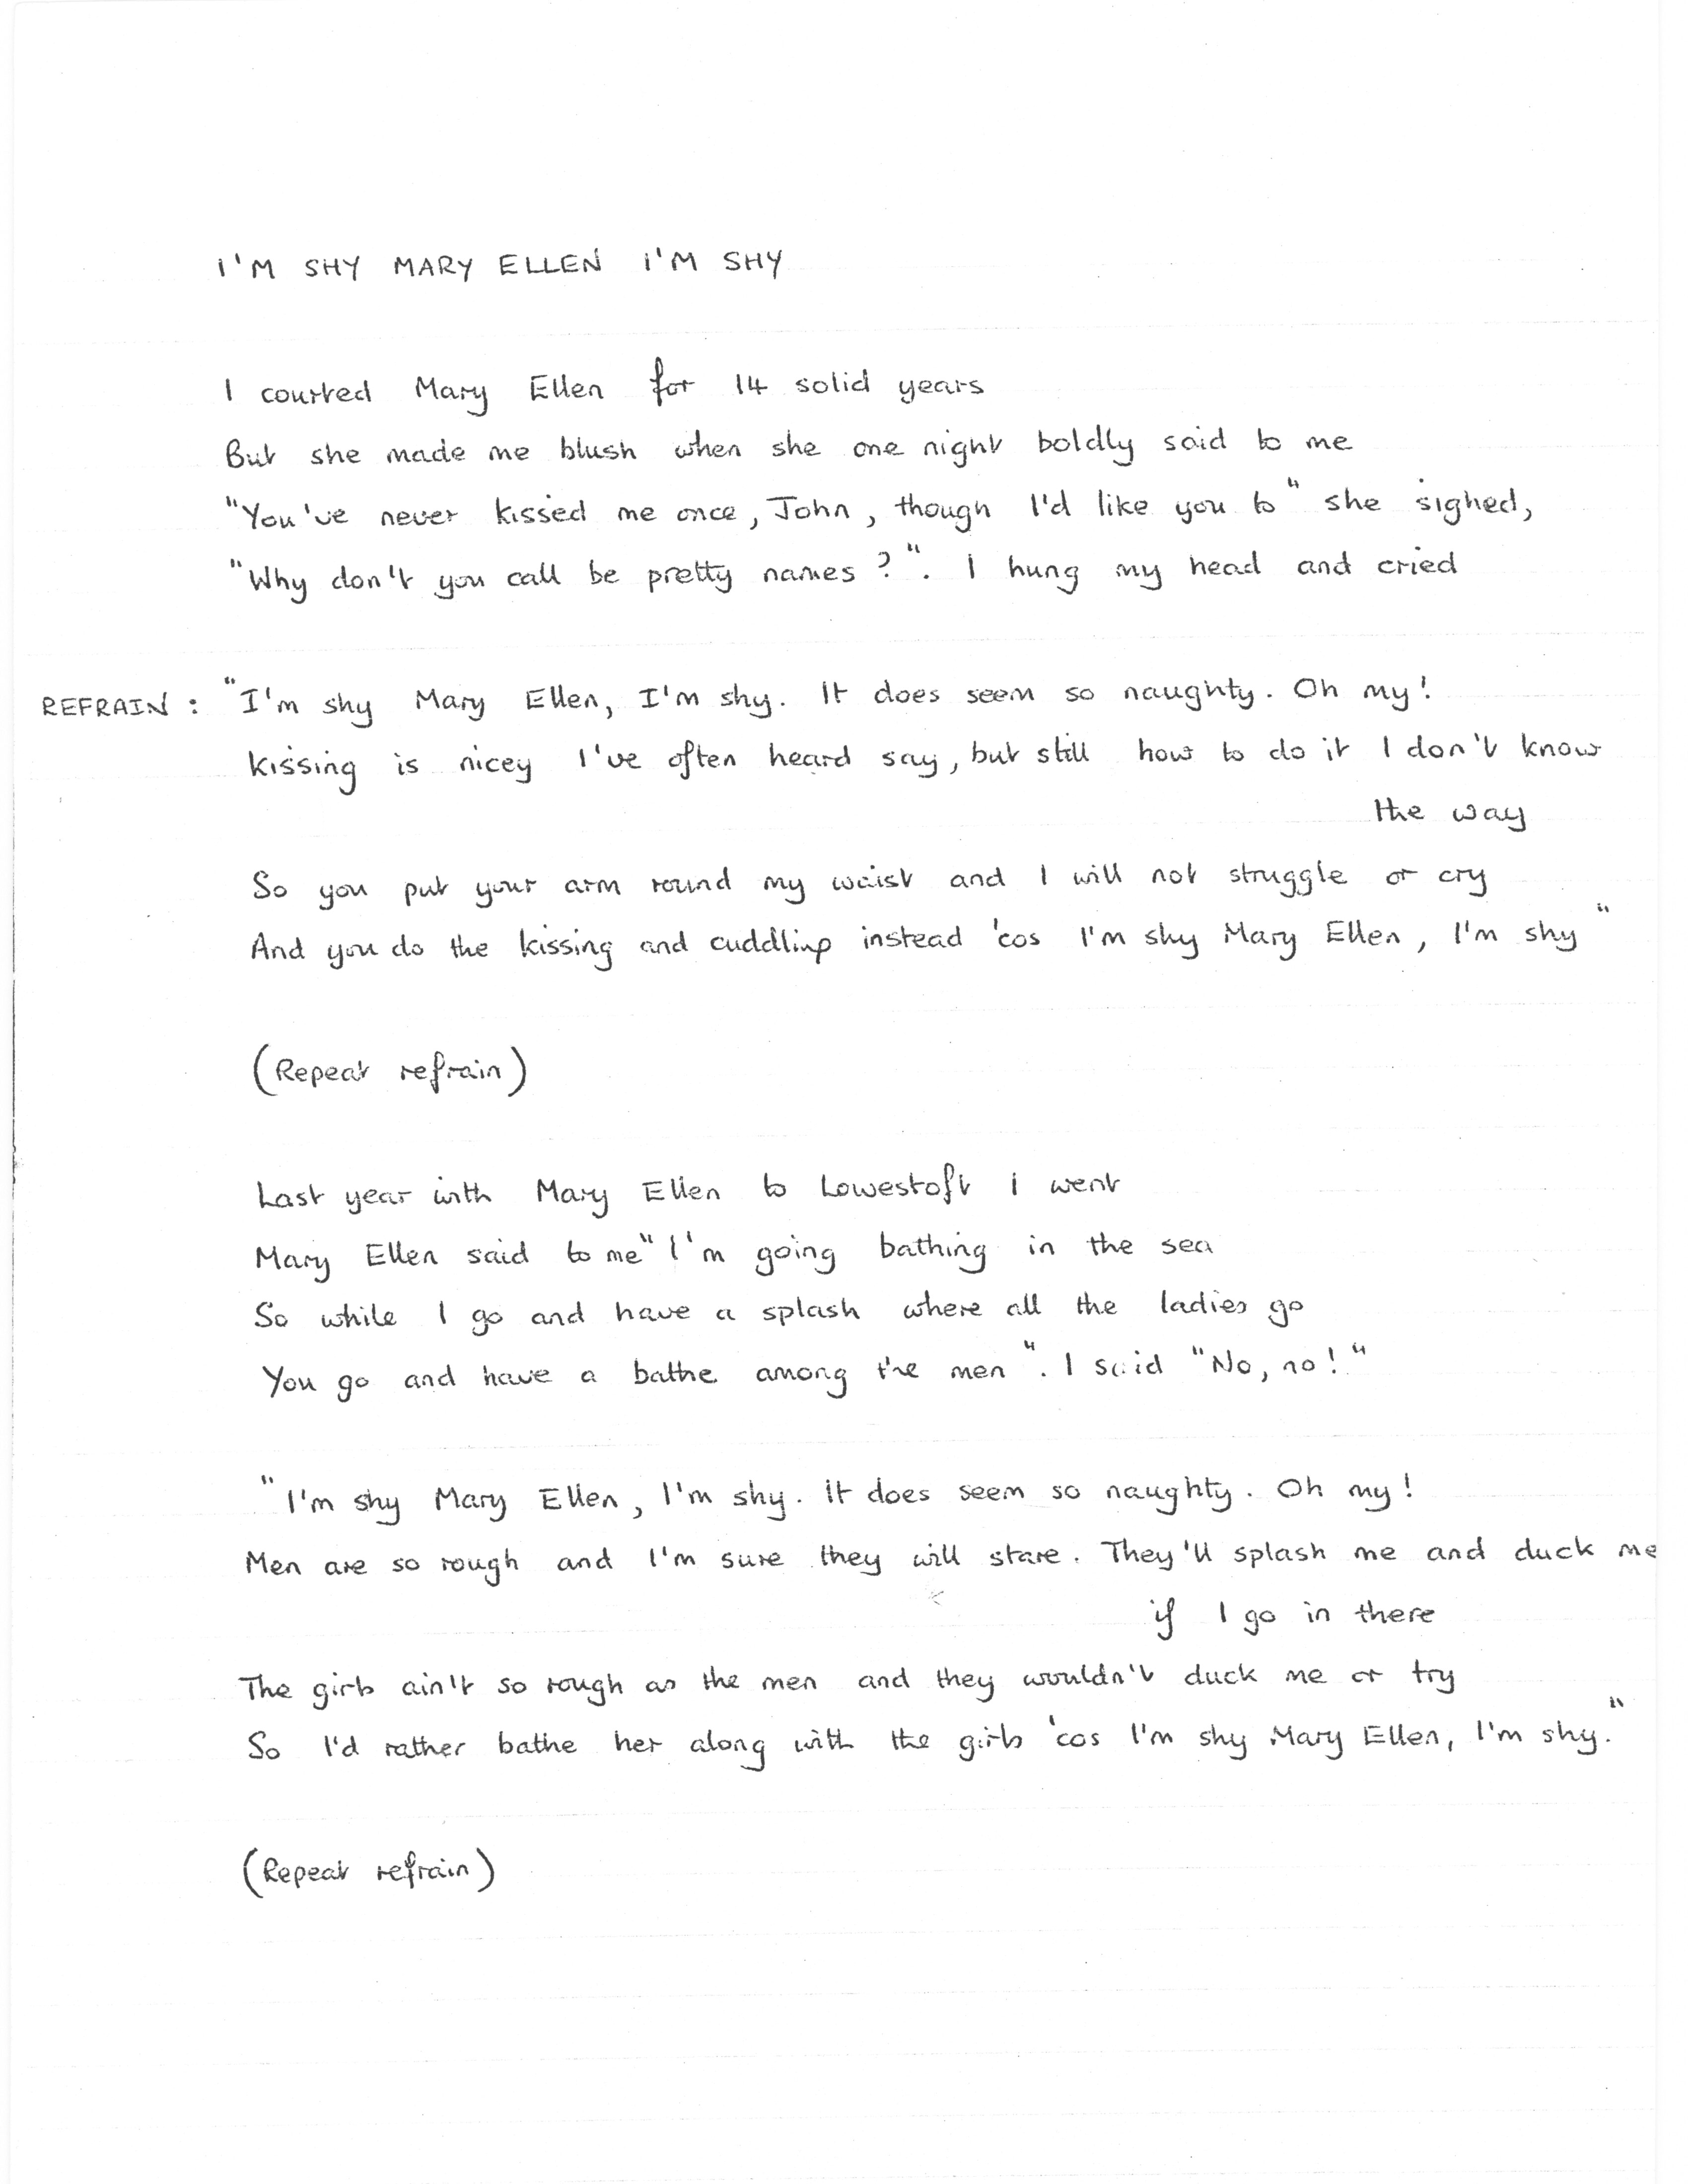 I'M SHY MARY ELLEN I'M SHY
I courted Mary Ellen for 14 solid years
But she made me blush when she one night boldly said to me
"You've never kissed me once, John, though I'd like you to" she sighed,
"Why don't you call be pretty names?". I hung my head and cried
REFRAIN : "I'm shy Mary Ellen, I'm shy. It does seem so naughty. Oh my!
Kissing is nicey I've often heard say, but still how to do it I don't know
the way
So you put your arm round my waist and I will not struggle or cry
And you do the kissing and cuddling instead 'cos I'm shy Mary Ellen, I'm shy"
(Repeat refrain)
Last year with Mary Ellen to Lowestoft I went
Mary Ellen said to me "I'm going bathing in the sea
So while I go and have a splash where all the ladies go
You go and have a bathe among the men". I said "No, no!"
"I'm shy Mary Ellen, I'm shy. It does seem so naughty. Oh my!
Men are so rough and I'm sure they will stare. They'll splash me and duck me
if I go in there
The girls ain't so rough as the men and they wouldn't duck me or try
So I'd rather bathe her along with the girls 'cos I'm shy Mary Ellen, I'm shy."
(Repeat refrain)